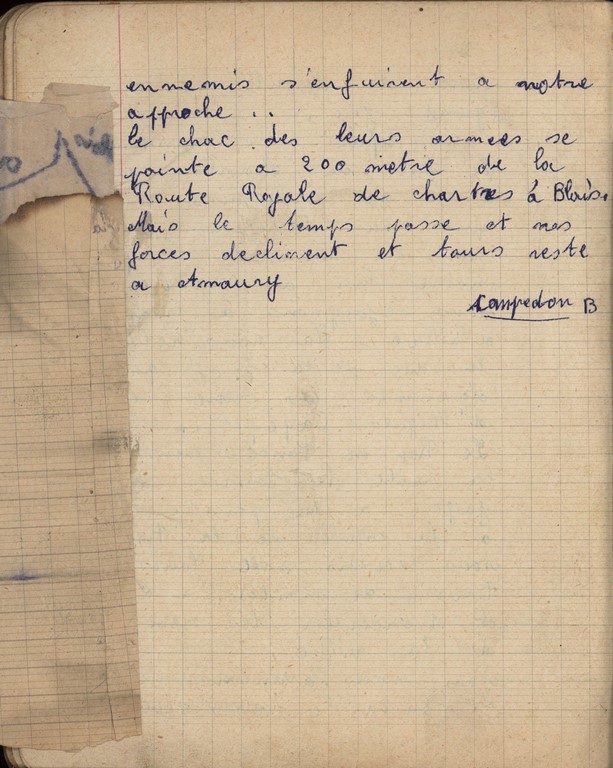 ennemis s'enfuirent a notre
approche ..
le choc des leurs armees se
pointe a 200 metre de la
Route Royale de chartres à Blois.
Mais le temps passe et nos
forces declinent et tours reste
a Amaury
Campedon B